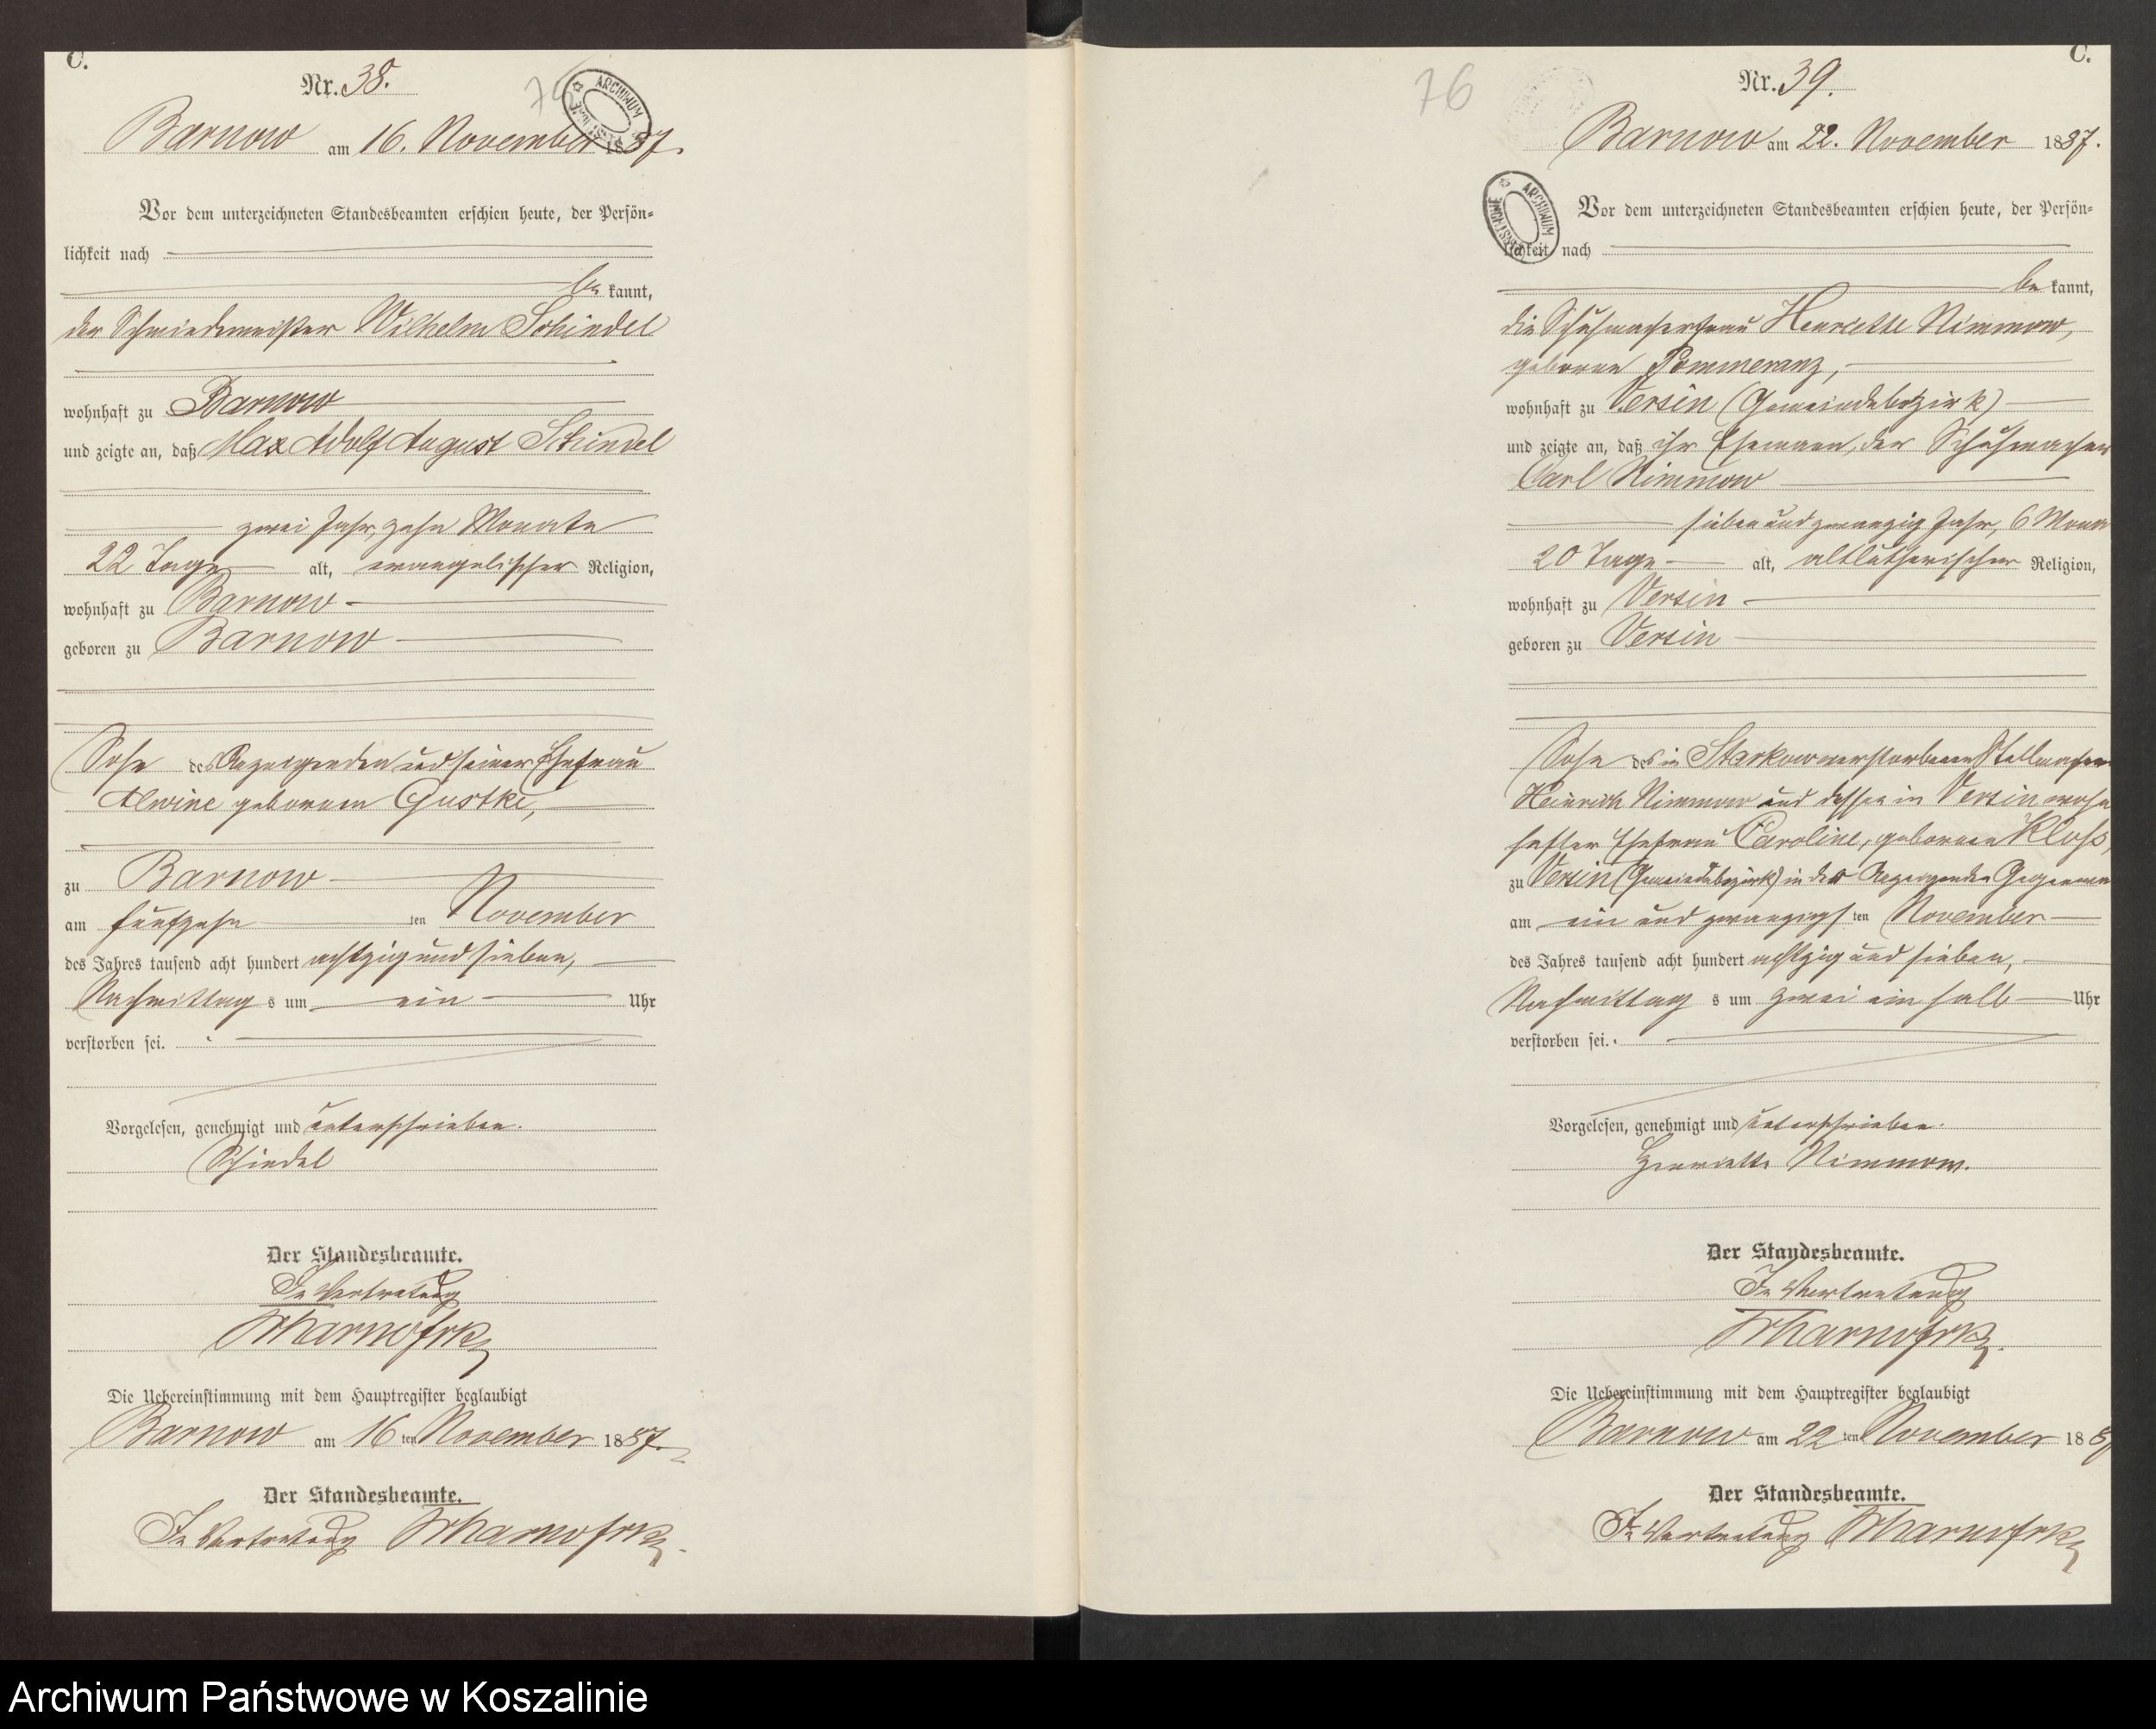 C.
Nr. 38.
76
ARCHIWUM
Barnow am 16. November 1887.
Vor dem unterzeichneten Standesbeamten erschien heute, der Persön-
lichkeit nach
be kannt,
der Schmiedemeister Wilhelm Schindel
wohnhaft zu Barnow
und zeigte an, daß Max Adolf August Schindel
zwei Jahr, zehn Monate
22 Tage alt, evangelischer Religion,
wohnhaft zu Barnow
geboren zu Barnow
Sohn des Anzeigenden und seiner Ehefrau
Alwine geborenen Gustke,
zu Barnow
am fünfzehn ten November
des Jahres tausend acht hundert achtzig und sieben,
Nachmittag s um ein Uhr
verstorben sei.
Vorgelesen, genehmigt und unterschrieben.
Schindel
Der Standesbeamte.
In Vertretung
Die Uebereinstimmung mit dem Hauptregister beglaubigt
Barnow am 16 ten November 1887.
Der Standesbeamte.
In Vertretung
C.
Nr. 39.
76
Barnow am 22. November 1887.
ARCHIWUM
Vor dem unterzeichneten Standesbeamten erschien heute, der Persön-
lichkeit nach
be kannt,
die Schuhmacherfrau Henriette Nimmow,
geborene Pommeranz,
wohnhaft zu Versin (Gemeindebezirk)
und zeigte an, daß ihr Ehemann, der Schuhmacher
Carl Nimmow
sieben und zwanzig Jahr, 6 Mona
20 Tage alt, altlutherischer Religion,
wohnhaft zu Versin
geboren zu Versin
Sohn des in Starkow verstorbenen Stellmacher
Heinrich Nimmow und dessen in Versin wohn
hafter Ehefrau Caroline, geborenen Kloß,
zu Versin (Gemeindebezirk) in der Anzeigenden Gegenwa
am ein und zwanzigs ten November
des Jahres tausend acht hundert achtzig und sieben,
Nachmittag s um zwei ein halb Uhr
verstorben sei.
Vorgelesen, genehmigt und unterschrieben.
Henriette Nimmow.
Der Standesbeamte.
In Vertretung
Die Uebereinstimmung mit dem Hauptregister beglaubigt
Barnow am 22 ten November 188
Der Standesbeamte.
In Vertretung
Archiwum Państwowe w Koszalinie